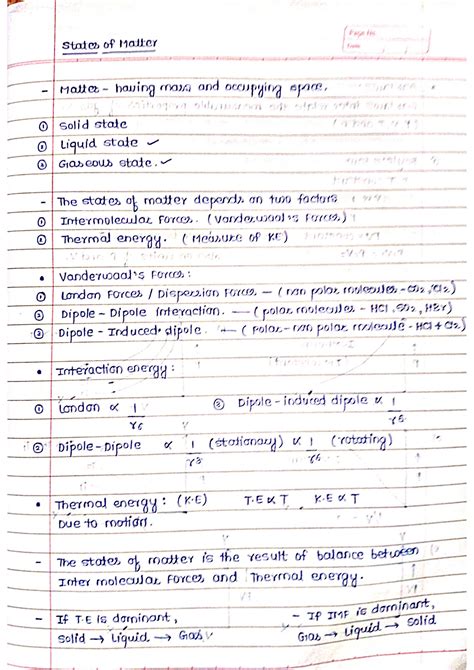 Page No.
Date
States of Matter
- Matter - having mass and occupying space.
① Solid state
② Liquid state ✓
③ Gaseous state. ✓
- The states of matter depends on two factors
① Intermolecular Forces. (Vanderwaal's Forces)
② Thermal energy. (Measure of KE)
• Vanderwaal's Forces:
① London Forces / Dispersion Forces — (non polar molecules - CO2, Cl2)
② Dipole - Dipole Interaction. — (polar molecules - HCl, SO2, HBr)
③ Dipole - Induced dipole. — (polar - non polar molecule - HCl + Cl2)
• Interaction energy:
① London ∝ 1/r6 ③ Dipole - induced dipole ∝ 1/r6
② Dipole - Dipole ∝ 1/r3 (stationary) ∝ 1/r6 (rotating)
• Thermal energy: (K.E) T.E ∝ T K.E ∝ T
Due to motion.
- The states of matter is the result of balance between
Inter molecular Forces and Thermal energy.
- If T.E is dominant,
Solid → Liquid → Gas
- If IMF is dominant,
Gas → Liquid → Solid